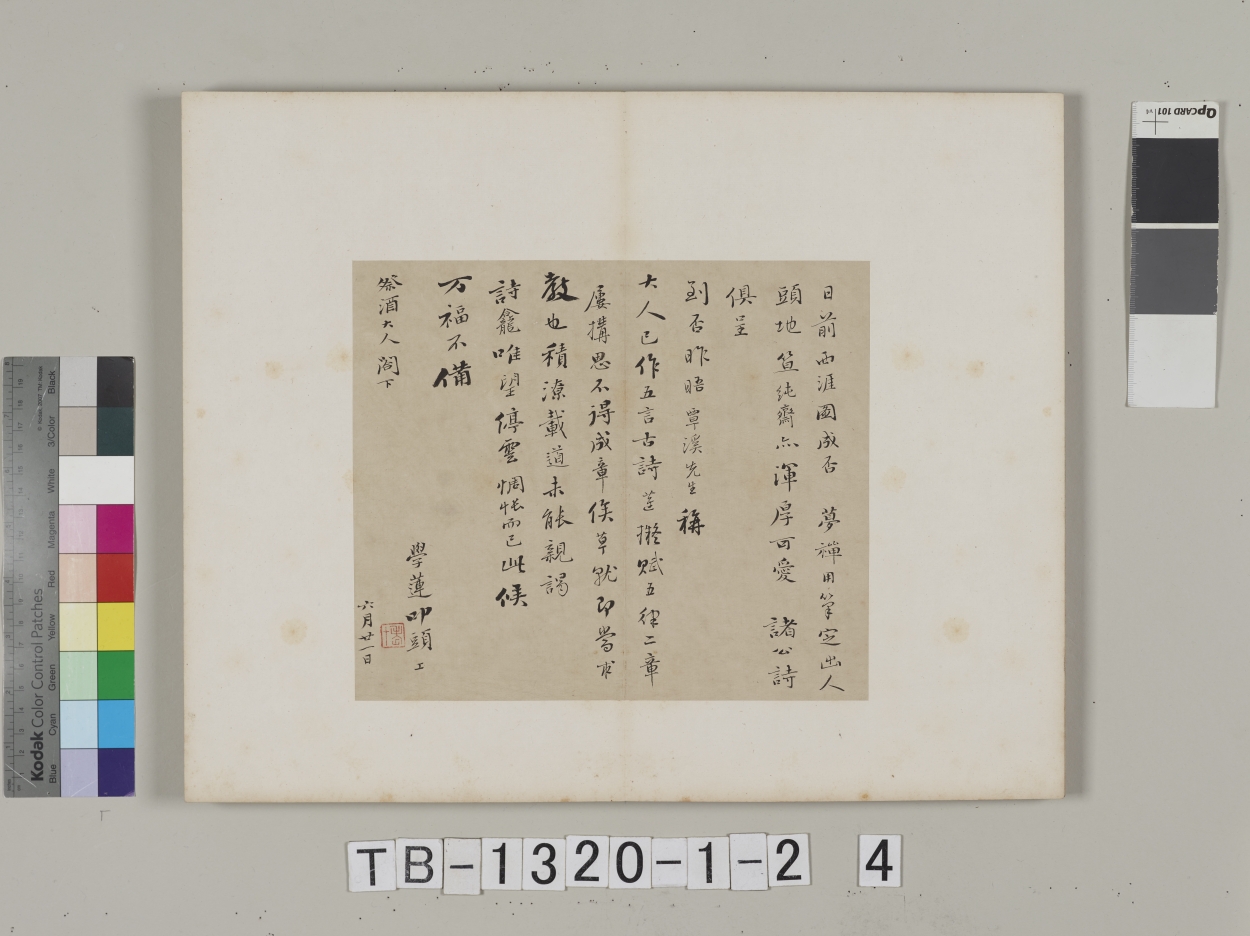 日前西涯圖成否 夢禪用筆定出人
頭地 笪純齋亦渾厚可愛 諸公詩
俱呈
到否昨晤 覃溪先生稱
大人已作五言古詩 蓮擬賦五律二章
屢搆思不得成章俟草就即當求
教也積潦載道未能親謁
詩龕唯望停雲惆悵而已此候
万福不備
學蓮叩頭上
祭酒大人閣下
六月廿一日
QPCARD 101 v4
Kodak Color Control Patches
Blue Cyan Green Yellow Red Magenta White 3/Color Black
TB-1320-1-2 4